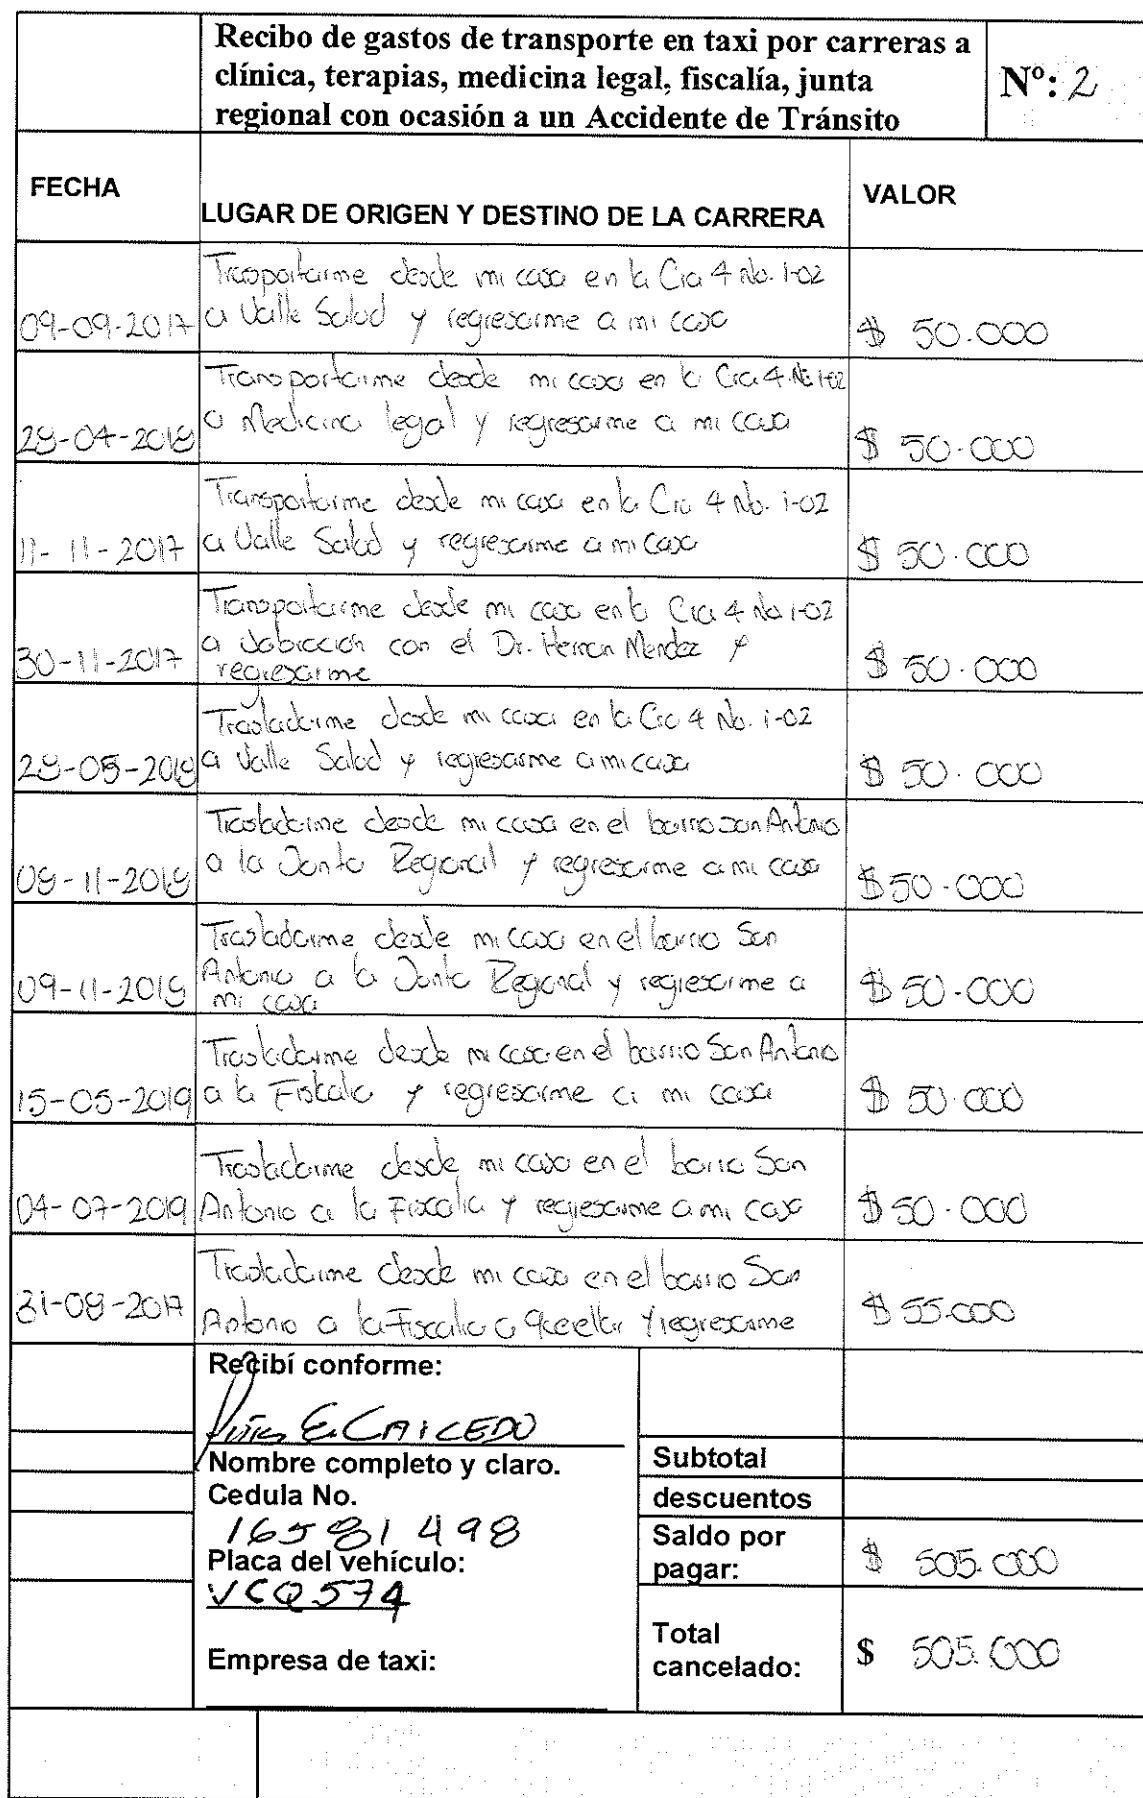 Recibo de gastos de transporte en taxi por carreras a
clínica, terapias, medicina legal, fiscalía, junta
regional con ocasión a un Accidente de Tránsito
Nº: 2
FECHA
LUGAR DE ORIGEN Y DESTINO DE LA CARRERA
VALOR
Trasportarme desde mi casa en la Cra 4 No. 1-02
09-09-2017 a Valle Salud y regresarme a mi casa $ 50.000
Transportarme desde mi casa en la Cra 4 No 1-02
28-04-2018 a Medicina legal y regresarme a mi casa $ 50.000
Transportarme desde mi casa en la Cra 4 No. 1-02
11-11-2017 a Valle Salud y regresarme a mi casa $ 50.000
Transportarme desde mi casa en la Cra 4 No 1-02
30-11-2017 a con el Dr. Hernan Mendez y $ 50.000
regresarme
Trasladarme desde mi casa en la Cra 4 No. 1-02
28-05-2018 a Valle Salud y regresarme a mi casa $ 50.000
Trasladarme desde mi casa en el barrio San Antonio
08-11-2018 a la Junta Regional y regresarme a mi casa $ 50.000
Trasladarme desde mi casa en el barrio San
09-11-2018 Antonio a la Junta Regional y regresarme a $ 50.000
mi casa
Trasladarme desde mi casa en el barrio San Antonio
15-05-2019 a la Fiskalia y regresarme a mi casa $ 50.000
Trasladarme desde mi casa en el barrio San
04-07-2019 Antonio a la Fiscalia y regresarme a mi casa $ 50.000
Trasladarme desde mi casa en el barrio San
31-08-2017 Antonio a la Fiscalia a y regresarme $ 55.000
Recibí conforme:
E. CAICEDO
Nombre completo y claro.
Cedula No.
16581498
Placa del vehículo:
VCQ574
Empresa de taxi:
Subtotal
descuentos
Saldo por
pagar: $ 505.000
Total
cancelado: $ 505.000